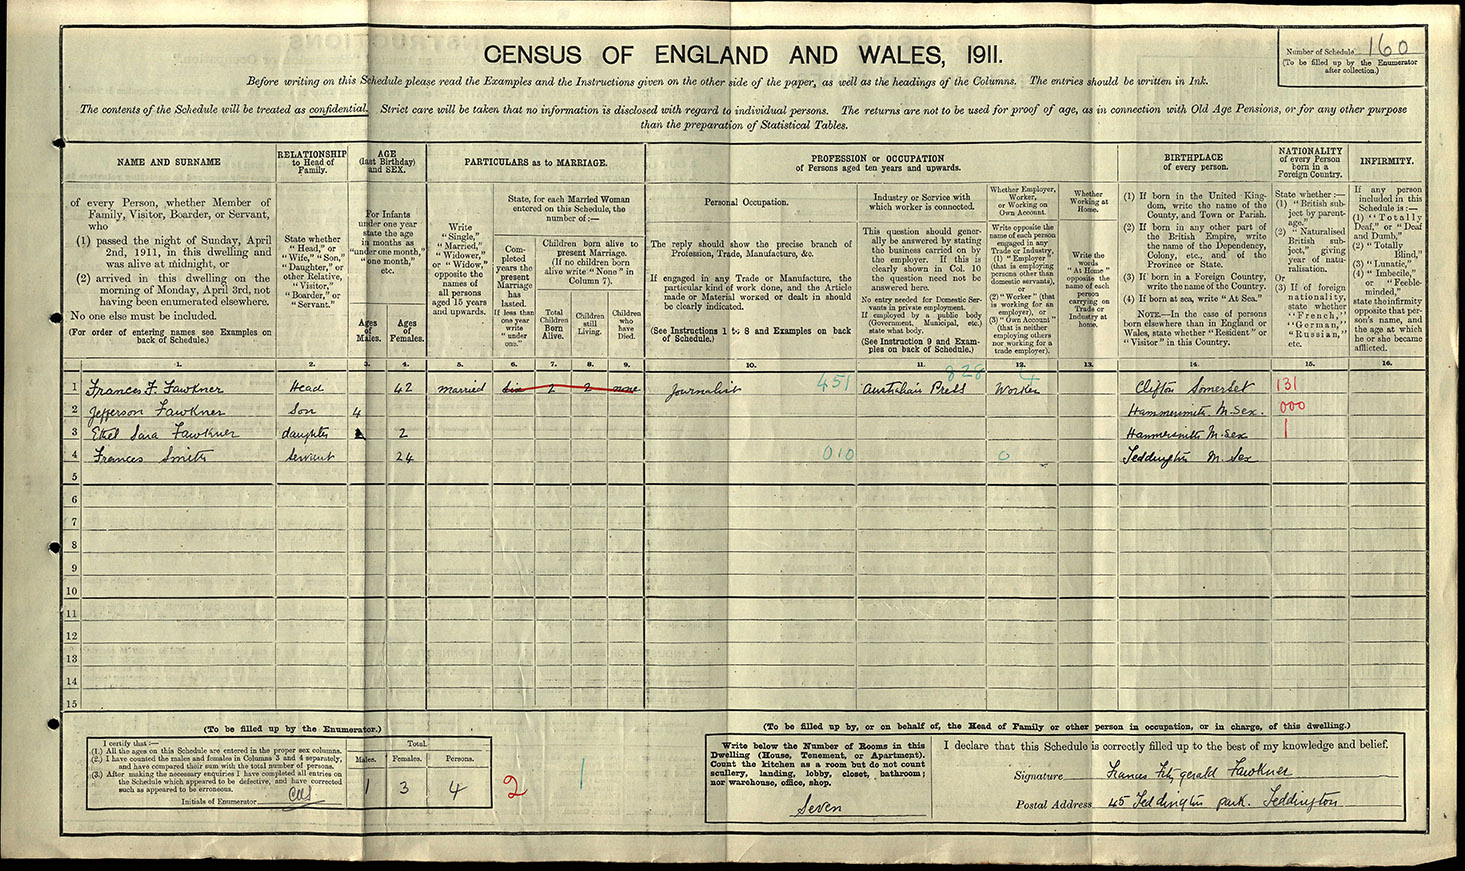 CENSUS OF ENGLAND AND WALES, 1911.
Number of Schedule 160
(To be filled up by the Enumerator
after collection.)
Before writing on this Schedule please read the Examples and the Instructions given on the other side of the paper, as well as the headings of the Columns. The entries should be written in Ink.
The contents of the Schedule will be treated as confidential. Strict care will be taken that no information is disclosed with regard to individual persons. The returns are not to be used for proof of age, as in connection with Old Age Pensions, or for any other purpose
than the preparation of Statistical Tables.
NAME AND SURNAME
of every Person, whether Member of
Family, Visitor, Boarder, or Servant,
who
(1) passed the night of Sunday, April
2nd, 1911, in this dwelling and
was alive at midnight, or
(2) arrived in this dwelling on the
morning of Monday, April 3rd, not
having been enumerated elsewhere.
No one else must be included.
(For order of entering names see Examples on
back of Schedule.)
RELATIONSHIP
to Head of
Family.
State whether
"Head," or
"Wife," "Son,"
"Daughter," or
other Relative,
"Visitor,"
"Boarder," or
"Servant."
AGE
(last Birthday)
and SEX.
For Infants
under one year
state the age
in months as
"under one month,"
"one month,"
etc.
Ages
of
Males.
Ages
of
Females.
PARTICULARS as to MARRIAGE.
Write
"Single,"
"Married,"
"Widower,"
or "Widow,"
opposite the
names of
all persons
aged 15 years
and upwards.
State, for each Married Woman
entered on this Schedule, the
number of:—
Com-
pleted
years the
present
Marriage
has
lasted.
If less than
one year
write
"under
one."
Children born alive to
present Marriage.
(If no children born
alive write "None" in
Column 7).
Total
Children
Born
Alive.
Children
still
Living.
Children
who
have
Died.
PROFESSION or OCCUPATION
of Persons aged ten years and upwards.
Personal Occupation.
The reply should show the precise branch of
Profession, Trade, Manufacture, &c.
If engaged in any Trade or Manufacture, the
particular kind of work done, and the Article
made or Material worked or dealt in should
be clearly indicated.
(See Instructions 1 to 8 and Examples on back
of Schedule.)
Industry or Service with
which worker is connected.
This question should gener-
ally be answered by stating
the business carried on by
the employer. If this is
clearly shown in Col. 10
the question need not be
answered here.
No entry needed for Domestic Ser-
vants in private employment.
If employed by a public body
(Government, Municipal, etc.)
state what body.
(See Instruction 9 and Exam-
ples on back of Schedule.)
Whether Employer,
Worker,
or Working on
Own Account.
Write opposite the
name of each person
engaged in any
Trade or Industry,
(1) "Employer"
(that is employing
persons other than
domestic servants),
or
(2) "Worker" (that
is working for an
employer), or
(3) "Own Account"
(that is neither
employing others
nor working for a
trade employer).
Whether
Working at
Home.
Write the
words
"At Home"
opposite the
name of each
person
carrying on
Trade or
Industry at
home.
BIRTHPLACE
of every person.
(1) If born in the United King-
dom, write the name of the
County, and Town or Parish.
(2) If born in any other part of
the British Empire, write
the name of the Dependency,
Colony, etc., and of the
Province or State.
(3) If born in a Foreign Country,
write the name of the Country.
(4) If born at sea, write "At Sea."
NOTE.—In the case of persons
born elsewhere than in England or
Wales, state whether "Resident" or
"Visitor" in this Country.
NATIONALITY
of every Person
born in a
Foreign Country.
State whether:—
(1) "British sub-
ject by parent-
age,"
(2) "Naturalised
British sub-
ject," giving
year of natu-
ralisation.
Or
(3) If of foreign
nationality,
state whether
"French,"
"German,"
"Russian,"
etc.
INFIRMITY.
If any person
included in this
Schedule is:—
(1) "Totally
Deaf," or "Deaf
and Dumb,"
(2) "Totally
Blind,"
(3) "Lunatic,"
(4) "Imbecile,"
or "Feeble-
minded,"
state the infirmity
opposite that per-
son's name, and
the age at which
he or she became
afflicted.
1. 2. 3. 4. 5. 6. 7. 8. 9. 10. 11. 12. 13. 14. 15. 16.
1 Frances F. Fawkner Head 42 married six 2 2 none Journalist 451 Australian Press 828 Worker 4 Clifton Somerset 131
2 Jefferson Fawkner Son 4 Hammersmith. M. Sex. 000
3 Ethel Sara Fawkner daughter 2 Hammersmith M. Sex 1
4 Frances Smith Servant 24 010 0 Teddington M. Sex
5
6
7
8
9
10
11
12
13
14
15
(To be filled up by the Enumerator.)
I certify that:—
(1.) All the ages on this Schedule are entered in the proper sex columns.
(2.) I have counted the males and females in Columns 3 and 4 separately,
and have compared their sum with the total number of persons.
(3.) After making the necessary enquiries I have completed all entries on
the Schedule which appeared to be defective, and have corrected
such as appeared to be erroneous.
Initials of Enumerator
Total.
Males. Females. Persons.
1 3 4
2 1
(To be filled up by, or on behalf of, the Head of Family or other person in occupation, or in charge, of this dwelling.)
Write below the Number of Rooms in this
Dwelling (House, Tenement, or Apartment).
Count the kitchen as a room but do not count
scullery, landing, lobby, closet, bathroom;
nor warehouse, office, shop.
Seven
I declare that this Schedule is correctly filled up to the best of my knowledge and belief.
Signature Frances Fitzgerald Fawkner
Postal Address 45 Teddington park. Teddington